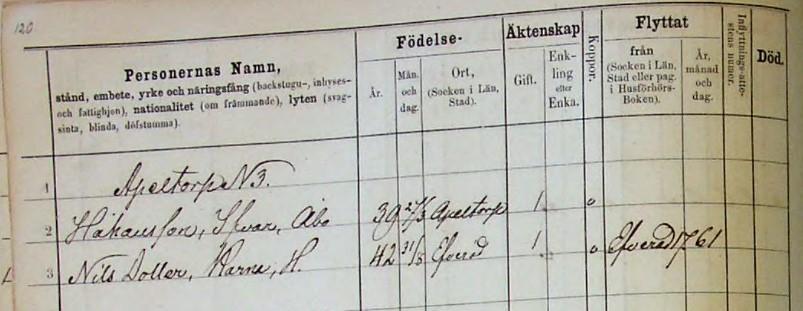 120
Personernas Namn,
stånd, embete, yrke och näringsfång (backstugu-, inhyses-
och fattighjon), nationalitet (om främmande), lyten (svag-
sinta, blinda, döfstumma).
Födelse-
År.
Mån.
och
dag.
Ort,
(Socken i Län,
Stad).
Äktenskap
Gift.
Enk-
ling
eller
Enka.
Koppor.
Flyttat
från
(Socken i Län,
Stad eller pag.
i Husförhörs-
Boken).
År,
månad
och
dag.
Inflyttnings-atte-
stens numer.
Död.
1 Apeltorp N3.
2 Håkansson, Åbo 39 Apeltorp 1 o
3 Nils Dotter, Karna, H. 42 31/8 Efverød 1 o Efverød 1761